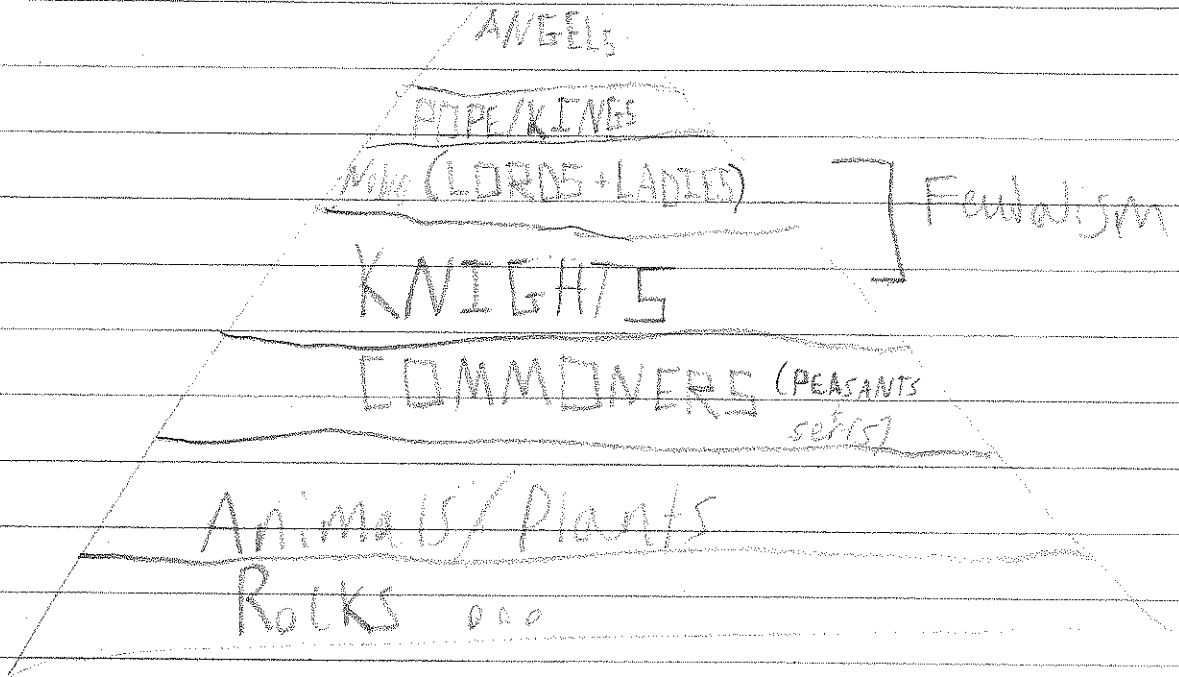 ANGELS
POPE/KINGS
Noble (LORDS + LADIES)
Feudalism
KNIGHTS
COMMONERS (PEASANTS
+
serfs)
Animals/Plants
Rocks ...